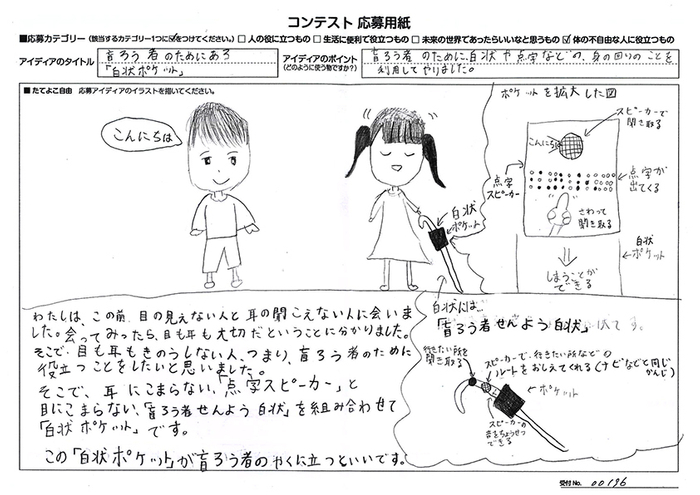 コンテスト 応募用紙
■応募カテゴリー（該当するカテゴリー1つに☑をつけてください。） □ 人の役に立つもの □ 生活に便利で役立つもの □ 未来の世界であったらいいなと思うもの ☑ 体の不自由な人に役立つもの
アイディアのタイトル
盲ろう者のためにある
「白状ポケット」
アイディアのポイント
（どのように使う物ですか?）
盲ろう者のために白状や点字などの、身の回りのことを
利用してやりました。
■たてよこ自由 応募アイディアのイラストを描いてください。
こんにちは
白状
ポケット
ポケットを拡大した図
スピーカーで
聞き取る
こんにちは
点字
スピーカー
点字が
出てくる
さわって
聞き取る
白状
ポケット
しまうことが
できる
わたしは、この前、目の見えない人と耳の聞こえない人に会いま
した。会ってみったら、目も耳も大切だということに分かりました。
そこで、目も耳もきのうしない人、つまり、盲ろう者のために
役立つことをしたいと思いました。
そこで、耳にこまらない、「点字スピーカー」と
目にこまらない、「盲ろう者せんよう白状」を組み合わせて
「白状ポケット」です。
この「白状ポケット」が盲ろう者のやくに立つといいです。
白状には、
「盲ろう者せんよう白状」
です。
行きたい所を
聞き取る
スピーカーで、行きたい所などの
ルートをおしえてくれる(ナビなどと同じ
かんじ)
ポケット
スピーカーの
音をちょうせつ
できる
受付No. 00196